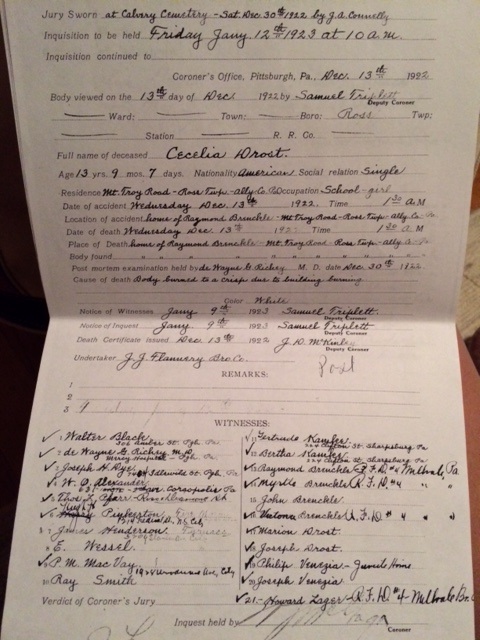 Jury Sworn at Calvery Cemetery - Sat. Dec. 30th 1922 by J.A. Connelly
Inquisition to be held Friday Jany 12th 1923 at 10 a.m.
Inquisition continued to
Coroner's Office, Pittsburgh, Pa., Dec. 13th 1922
Body viewed on the 13th day of Dec. 1922 by Samuel Triplett
Deputy Coroner
Ward: Town: Boro: Ross Twp:
Station R. R. Co.
Full name of deceased Cecelia Drost.
Age 13 yrs. 9 mos. 7 days. Nationality American Social relation Single
Residence Mt. Troy Road - Ross Twp - Ally Co. Pa Occupation School-girl
Date of accident Wednesday Dec. 13th 1922. Time 1 30 A.M
Location of accident home of Raymond Brenckle - Mt. Troy Road - Ross Twp - Ally Co. Pa
Date of death Wednesday Dec. 13th 1922 Time 1 30 a.m
Place of Death home of Raymond Brenckle - Mt. Troy Road - Ross Twp - Ally Co.
Body found " " " " " " " " " "
Post mortem examination held by de Wayne G. Richey M. D. date Dec. 30th 1922
Cause of death Body burned to a crisp due to building burning
Color White
Notice of Witnesses Jany 9th 1923 Samuel Triplett.
Deputy Coroner
Notice of Inquest Jany 9th 1923 Samuel Triplett
Deputy Coroner
Death Certificate issued Dec. 13th 1922 J. D. McKinley
Deputy Coroner
Undertaker J. J. Flannery Bro Co. Post
REMARKS:
1
2
3
WITNESSES:
1 Walter Black
Amber St. Pgh. Pa.
2 de Wayne G. Richey M.D.
Mercy Hospital - Pgh. Pa.
3 Joseph H. Dye Idlewild St. Pgh. Pa.
4 W. O. Alexander
Coraopolis Pa
5 Thos. L.
6 Pinkerton
7 James Henderson.
8 E. Wessel.
9 P. M. Mac Vay
10 Ray Smith
11 Gertrude Kamler
Clifton St. Sharpsburg Pa
12 Bertha Kamler
Clifton St. Sharpsburg Pa.
13 Raymond Brenckle R.F.D. #4 Millvale, Pa.
14 Myrtle Brenckle R.F.D. #4 " "
15 John Brenckle.
16 Brenckle R.F.D. #4 " "
17 Marion Drost.
18 Joseph Drost.
19 Philip Venezia - Juvenile Home
20 Joseph Venezia
21 - Howard Lager - R.F.D. #4 - Millvale
Verdict of Coroner's Jury
Inquest held by
Coroner